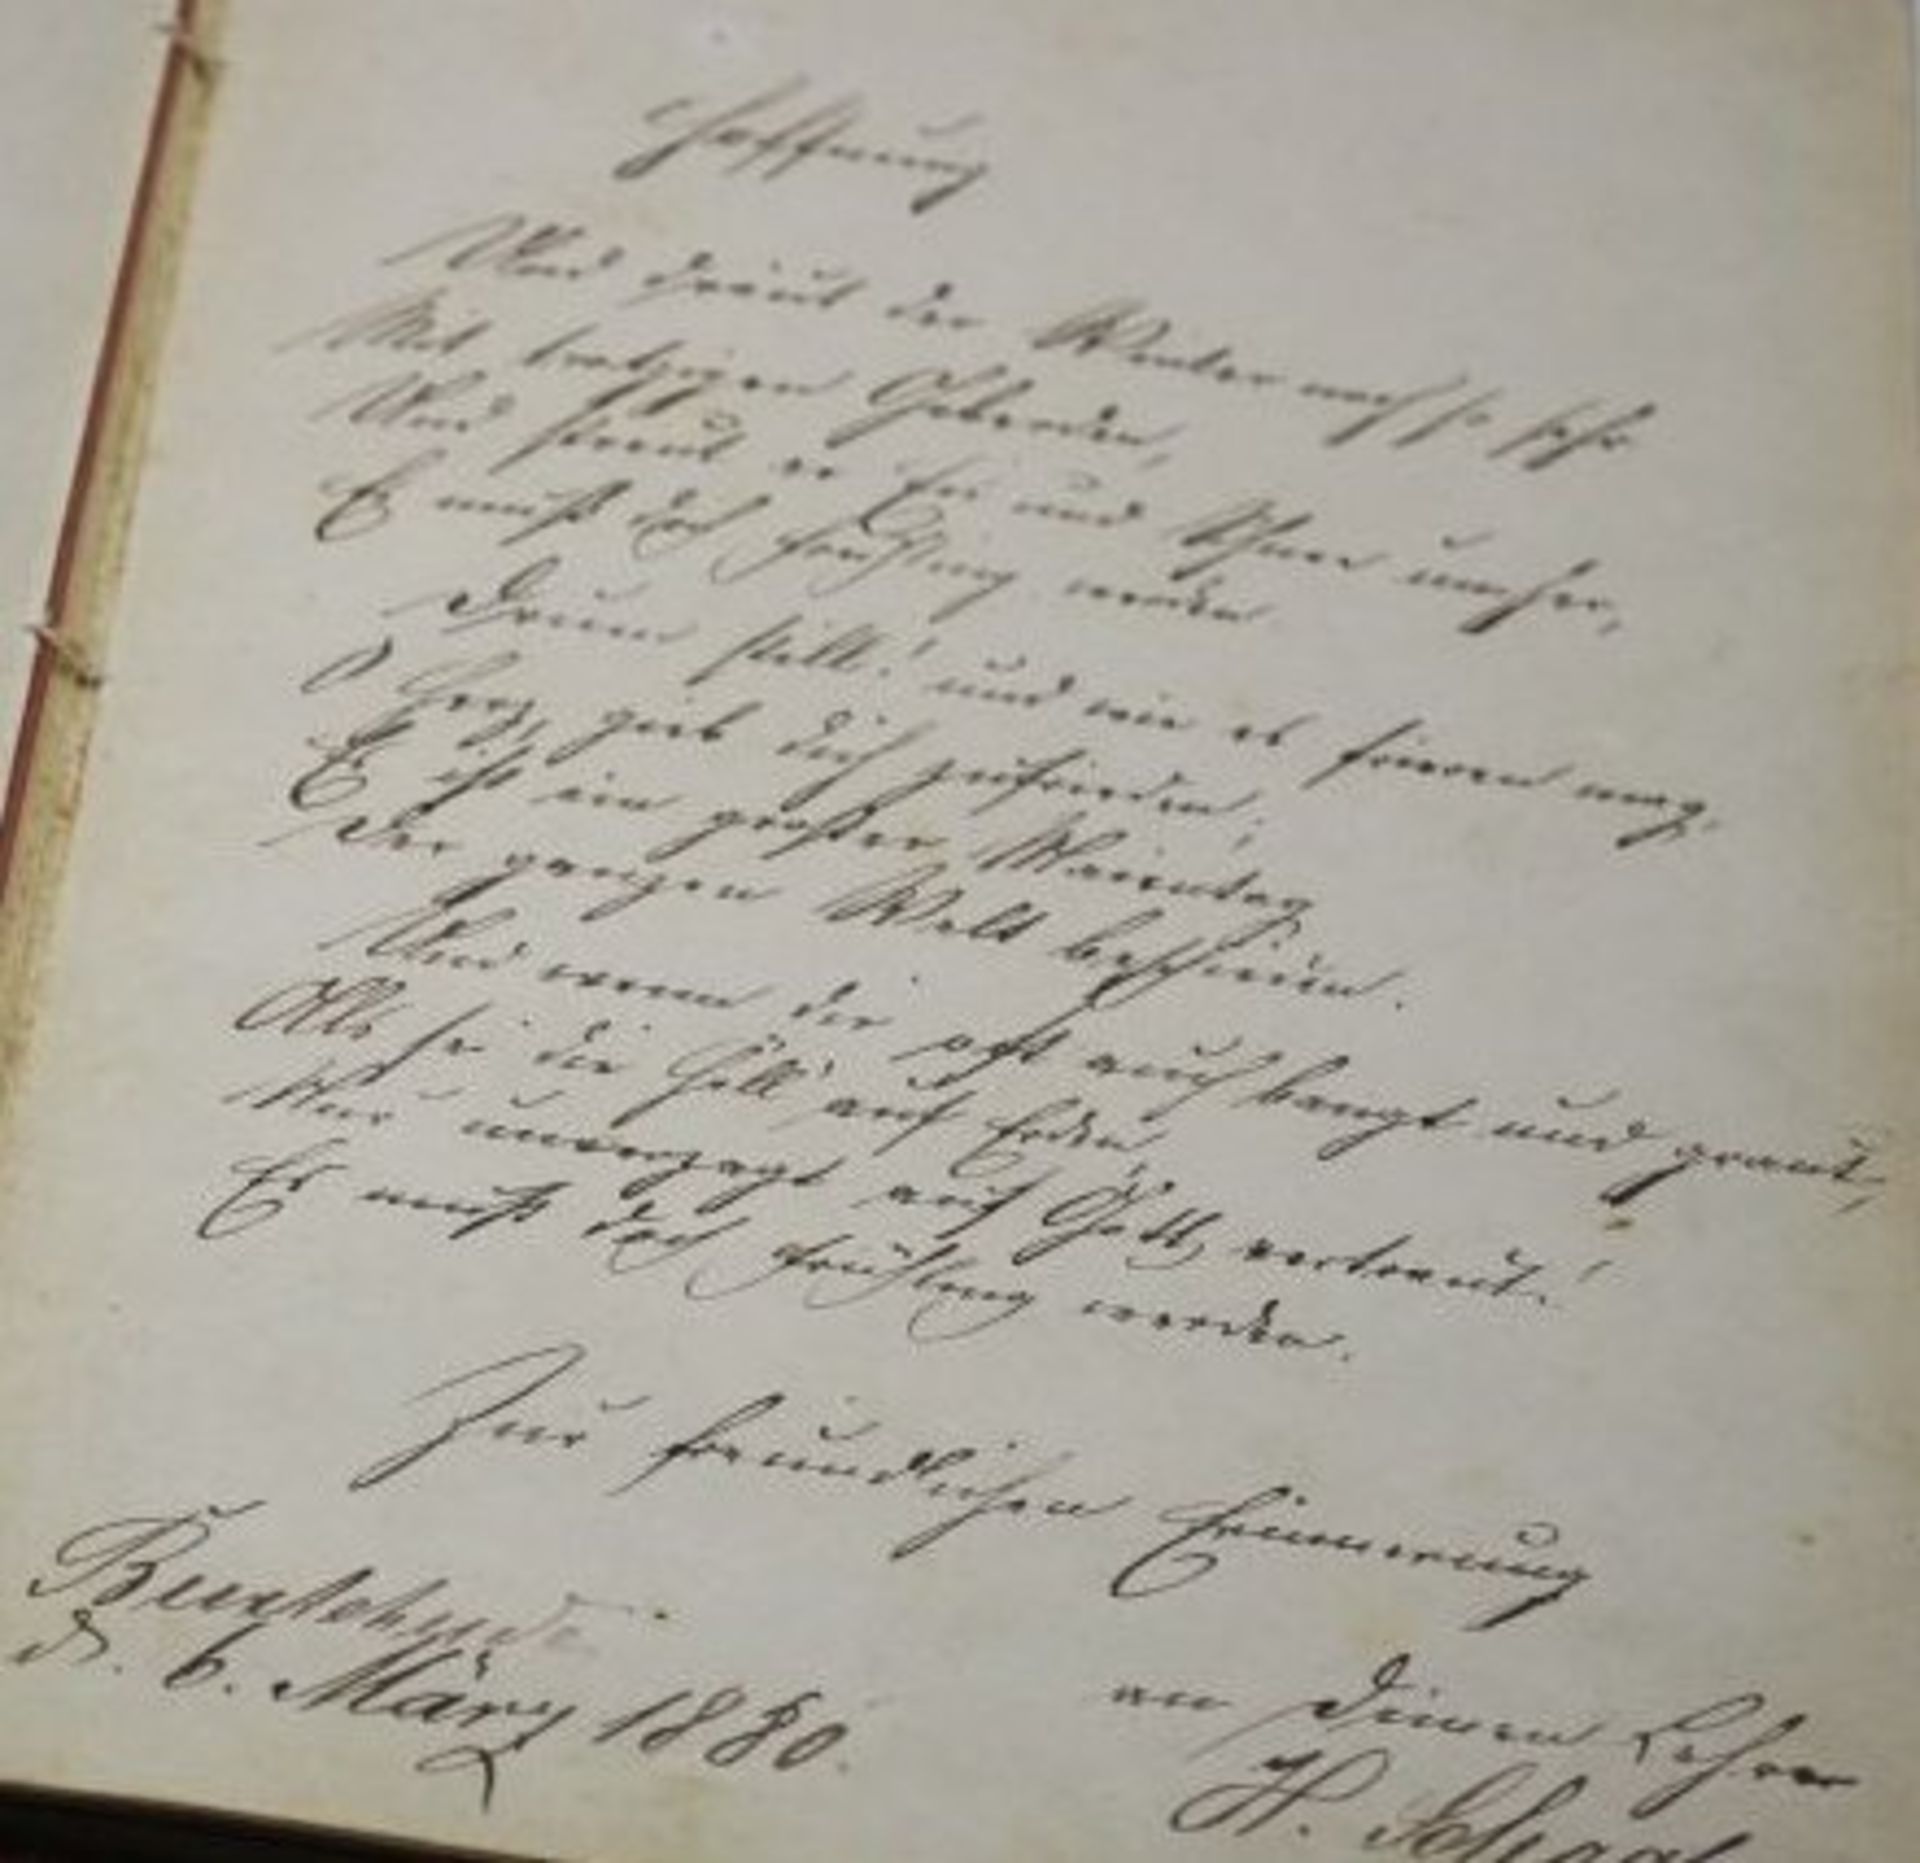 Hoffnung
Und dräut der Winter noch so sehr
Mit trotzigen Geberden,
Und streut er Eis und Schnee umher,
Es muß doch Frühling werden
Drum still! und wie es frieren mag,
O Herz, gieb dich zufrieden;
Es ist ein großer Maientag
Der ganzen Welt beschieden.
Und wenn dir oft auch bangt und graut,
Als sei die Höll' auf Erden,
Nur unverzagt auf Gott vertraut!
Es muß doch Frühling werden.
Zur freundlichen Erinnerung
Buxtehude
d. 6. März 1880.
an Deinen Lehrer
H.